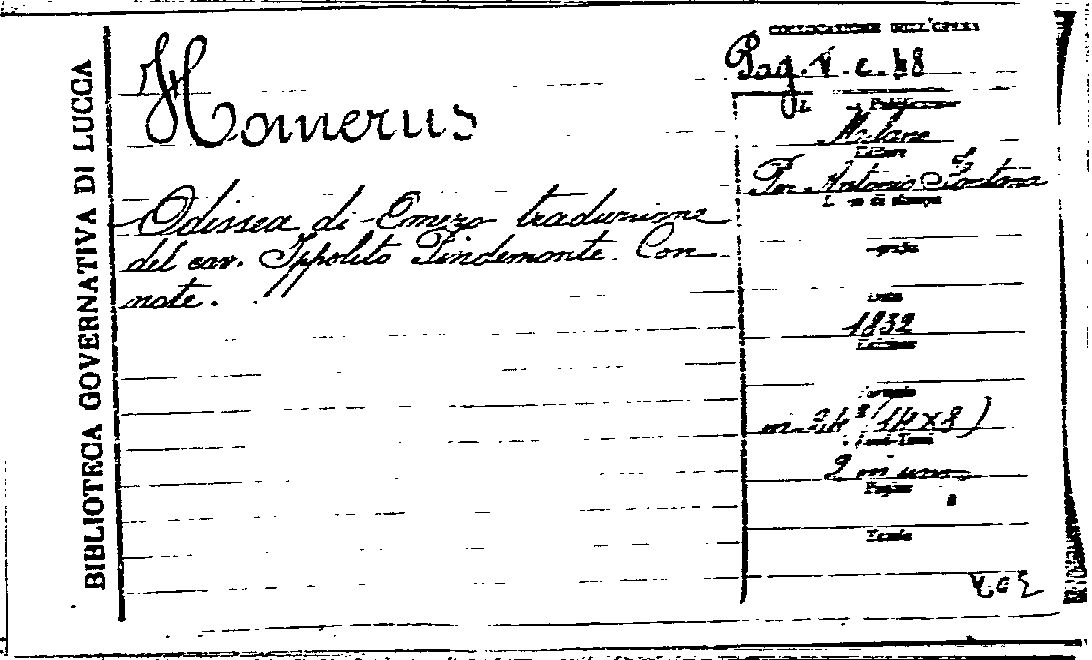 BIBLIOTECA GOVERNATIVA DI LUCCA
Homerus
Odissea di Omero traduzione
del cav. Ippolito Pindemonte. Con
note.
COLLOCAZIONE DELL'OPERA
Pag. V. c. 48
L. Pubblicazione
Milano
Editore
Per Antonio Fontana
L. di stampa
Data
1832
Edizione
Formato
in 24° (14x8)
2 in uno
Pagine
Tavole